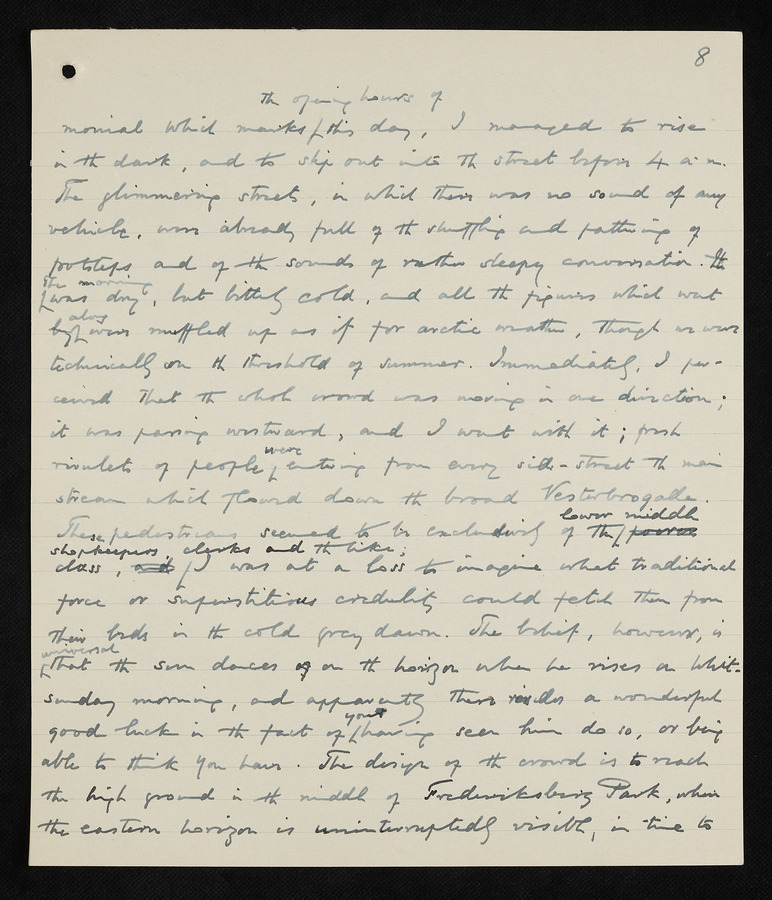 8
the opening hours of
monial which marks this day, I managed to rise
in the dark, and to slip out into the street before 4 a.m.
The glimmering streets, in which there was no sound of any
vehicle, were already full of the shuffling and pattering of
footsteps and of the sounds of rather sleepy conversation. It
the morning
was dry, but bitterly cold, and all the figures which went
along
by were muffled up as if for arctic weather, though we were
technically on the threshold of summer. Immediately, I per-
ceived that the whole crowd was moving in one direction;
it was passing westward, and I went with it; fresh
were
rivulets of people, entering from every side-street the main
stream which flowed down the broad Vesterbrogade.
lower middle
These pedestrians seemed to be exclusively of the poorer
shopkeepers, clerks and the like;
class, and I was at a loss to imagine what traditional
force or superstitious credulity could fetch them from
their beds in the cold grey dawn. The belief, however, is
universal
that the sun dances on the horizon when he rises on Whit-
sunday morning, and apparently there resides a wonderful
your
good luck in the fact of having seen him do so, or being
able to think you have. The design of the crowd is to reach
the high ground in the middle of Frederiksberg Park, when
the eastern horizon is uninterruptedly visible, in time to